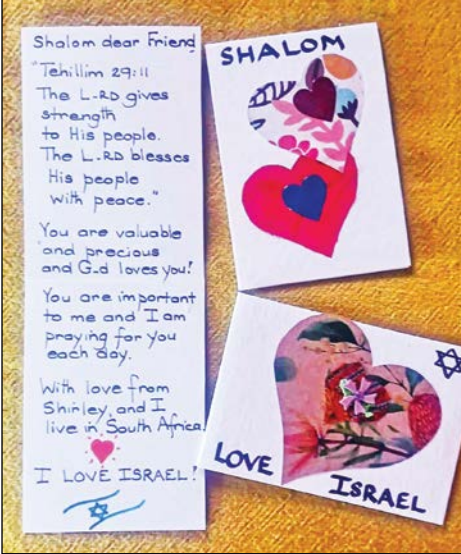 Shalom dear Friend
"Tehillim 29:11
The L-RD gives
strength
to His people.
The L-RD blesses
His people
with peace."
You are valuable
and precious
and G-d loves you!
You are important
to me and I am
praying for you
each day.
With love from
Shirley, and I
live in South Africa.
I LOVE ISRAEL!
SHALOM
LOVE
ISRAEL